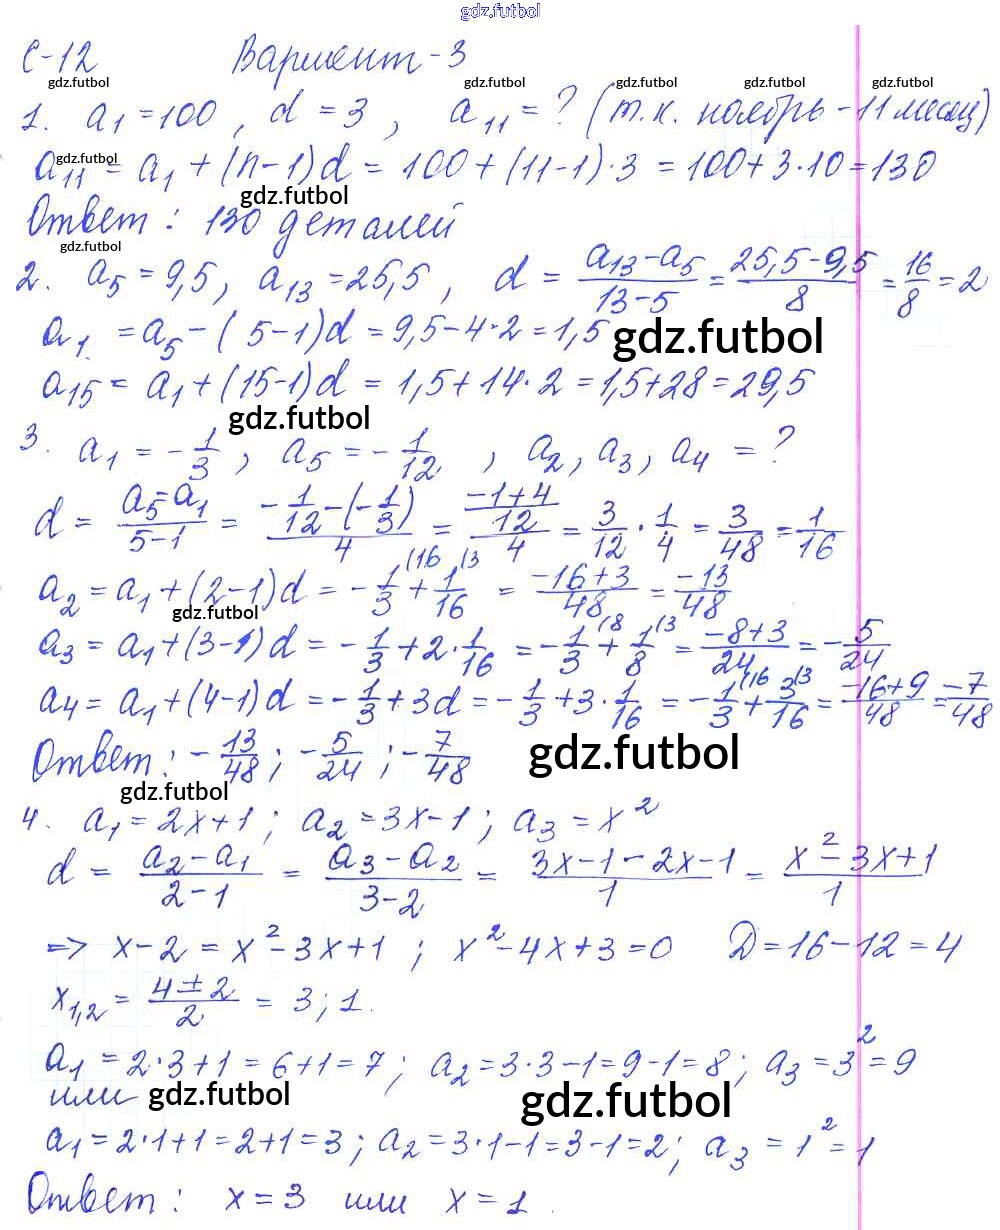 gdz.futbol
С-12 Вариант-3
gdz.futbol gdz.futbol gdz.futbol gdz.futbol gdz.futbol
1. a₁ = 100, d = 3, a₁₁ = ? (т.к. ноябрь - 11 месяц)
gdz.futbol
a₁₁ = a₁ + (n-1)d = 100 + (11-1)·3 = 100 + 3·10 = 130
gdz.futbol
Ответ: 130 деталей
gdz.futbol
2. a₅ = 9,5, a₁₃ = 25,5, d = (a₁₃ - a₅)/(13-5) = (25,5-9,5)/8 = 16/8 = 2
a₁ = a₅ - (5-1)d = 9,5 - 4·2 = 1,5
gdz.futbol
a₁₅ = a₁ + (15-1)d = 1,5 + 14·2 = 1,5 + 28 = 29,5
gdz.futbol
3. a₁ = -1/3, a₅ = -1/12, a₂, a₃, a₄ = ?
d = (a₅ - a₁)/(5-1) = (-1/12 - (-1/3))/4 = ((-1+4)/12)/4 = 3/12 · 1/4 = 3/48 = 1/16
a₂ = a₁ + (2-1)d = -1/3 (16 + 1/16 (3 = (-16+3)/48 = -13/48
gdz.futbol
a₃ = a₁ + (3-1)d = -1/3 + 2·1/16 = -1/3 (8 + 1/8 (3 = (-8+3)/24 = -5/24
a₄ = a₁ + (4-1)d = -1/3 + 3d = -1/3 + 3·1/16 = -1/3 (16 + 3/16 (3 = (-16+9)/48 = -7/48
Ответ: -13/48; -5/24; -7/48
gdz.futbol
gdz.futbol
4. a₁ = 2x+1; a₂ = 3x-1; a₃ = x²
d = (a₂ - a₁)/(2-1) = (a₃ - a₂)/(3-2) = (3x-1-2x-1)/1 = (x²-3x+1)/1
=> x-2 = x²-3x+1; x²-4x+3=0 D=16-12=4
x₁,₂ = (4±2)/2 = 3; 1.
a₁ = 2·3+1 = 6+1 = 7; a₂ = 3·3-1 = 9-1 = 8; a₃ = 3² = 9
или gdz.futbol gdz.futbol
a₁ = 2·1+1 = 2+1 = 3; a₂ = 3·1-1 = 3-1 = 2; a₃ = 1² = 1
Ответ: x = 3 или x = 1.